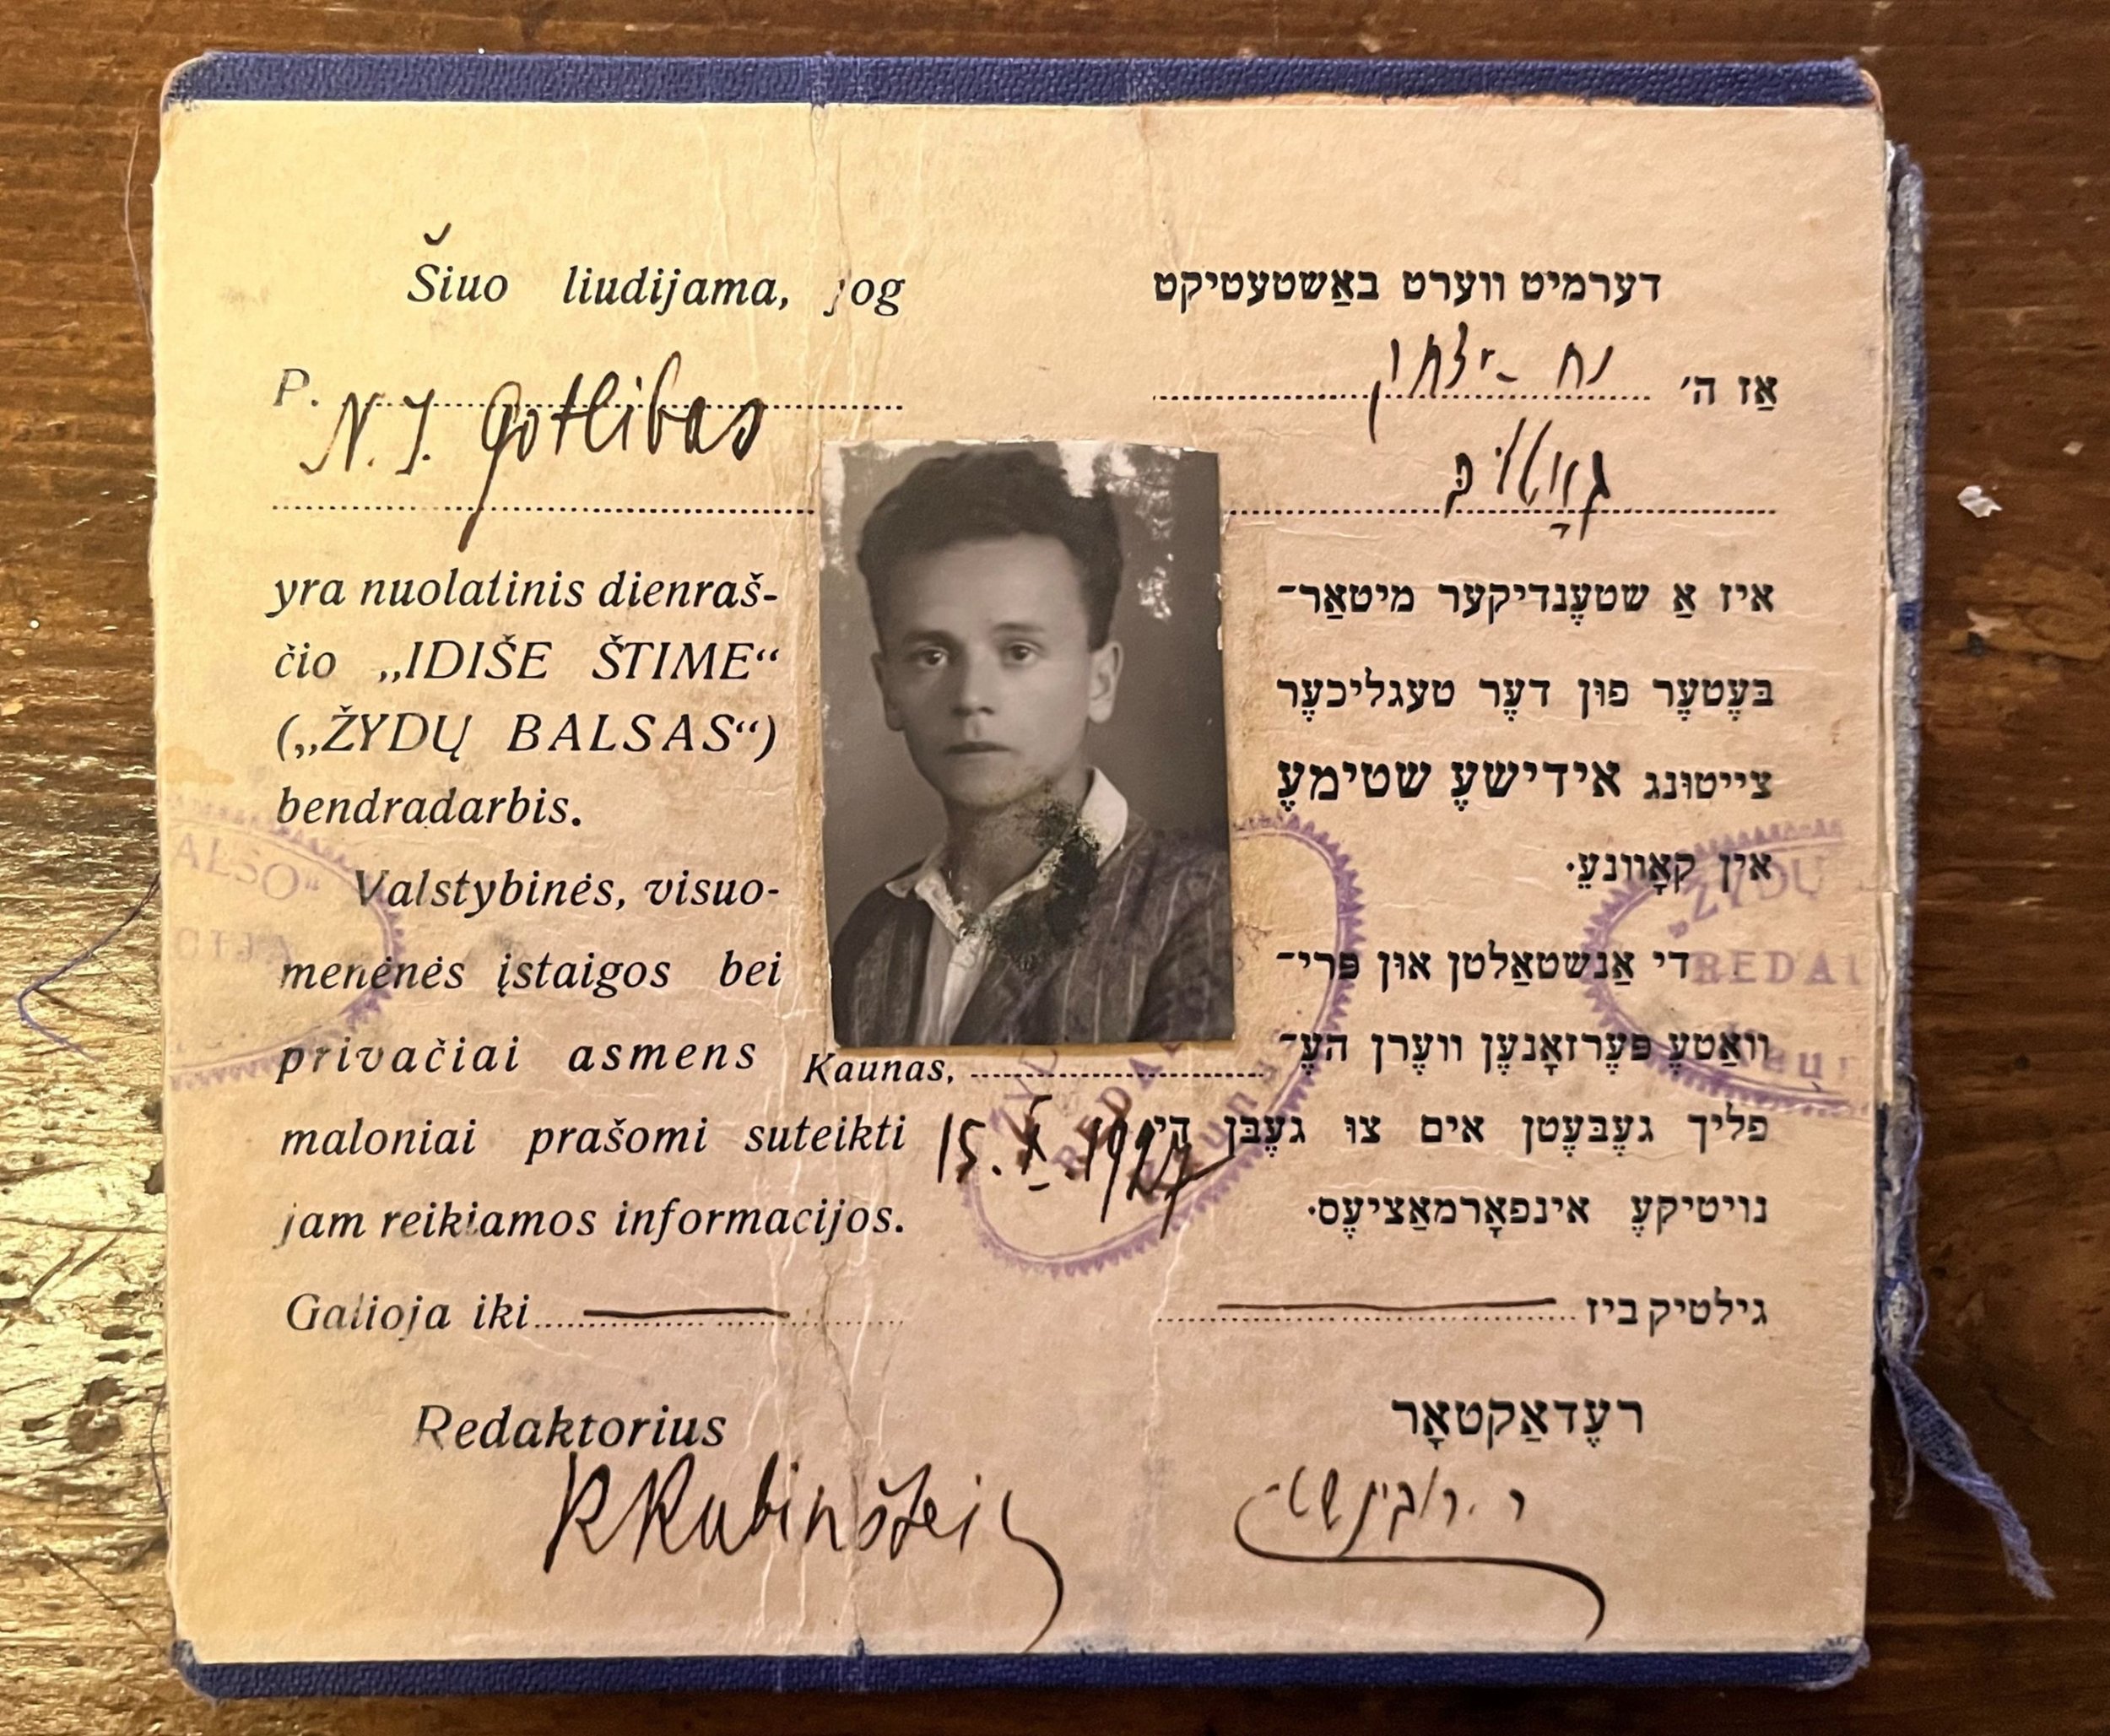 Šiuo liudijama, jog
P. N. J. Gotlibas
yra nuolatinis dienraš-
čio „IDIŠE ŠTIME“
(„ŽYDŲ BALSAS“)
bendradarbis.
Valstybinės, visuo-
menėnės įstaigos bei
privačiai asmens
maloniai prašomi suteikti
jam reikiamos informacijos.
Galioja iki
Redaktorius
R Rubinštein
Kaunas,
15. X. 1927
דערמיט ווערט באַשטעטיקט
אַז ה׳ נח ־ יצחק
גאָטליב
איז אַ שטעָנדיקער מיטאַר־
בּעָטעָר פון דעָר טעגליכעָר
צייטונג אידישעָ שטימעָ
אין קאָוונעָ.
די אַנשטאַלטן און פּרי־
וואַטעָ פּעָרזאָנעָן ווערן העָ־
פליך געָבּעָטן אים צו געָבּן די
נויטיקעָ אינפאָרמאַציעָס.
גילטיק ביז
רעָדאַקטאָר
ר. רובינשטיין
ALSO“
„ŽYDŲ
REDA